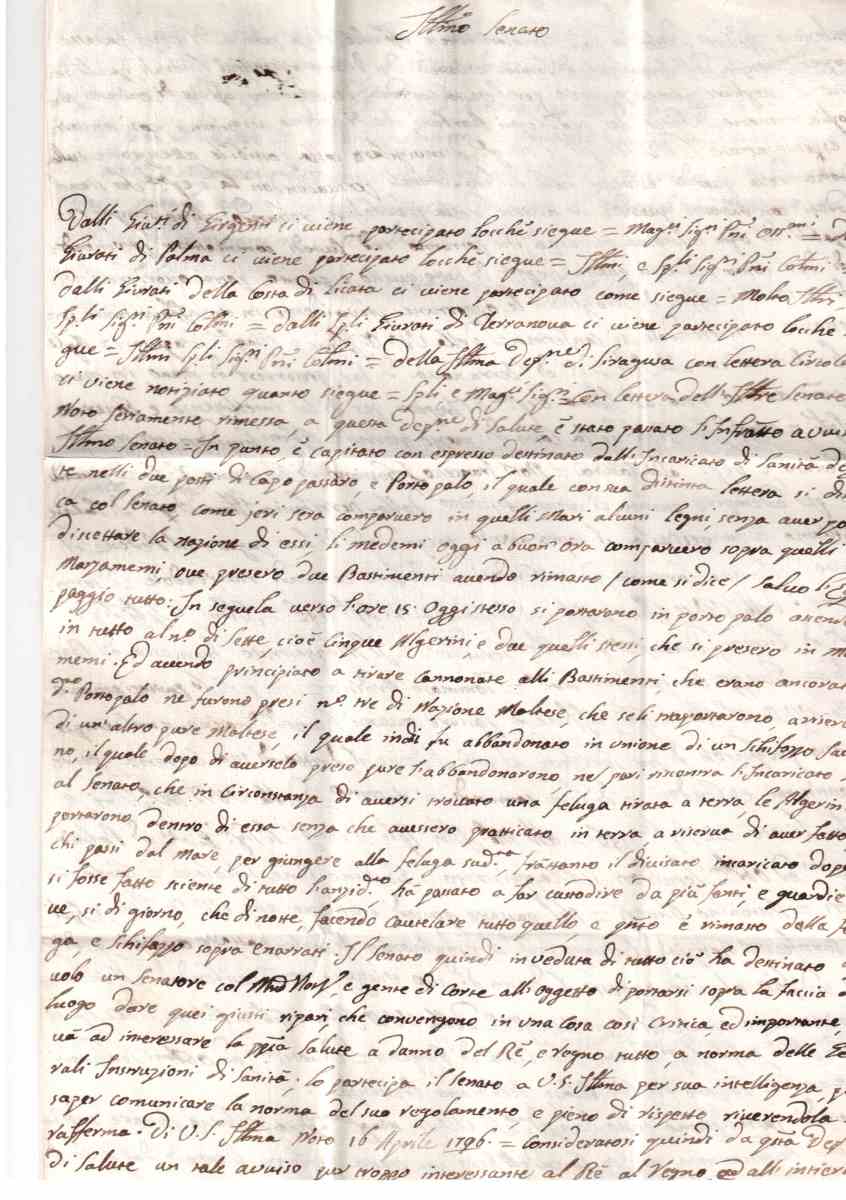 Ill.mo Senato
Dalli Giur.ti di Girgenti ci viene partecipato locchè siegue = Mag.ci Sig.ri P.ni Oss.mi =
Giurati di Palma ci viene partecipato locchè siegue = Ill.mi, e Sp.li Sig.ri P.ni Col.mi
dalli Giurati della Costa di Licata ci viene partecipato come siegue = Molto Ill.ri,
Sp.li Sig.ri P.ni Col.mi = dalli Sp.li Giurati di Terranova ci viene partecipato locchè
gue = Ill.mi Sp.li Sig.ri P.ni Col.mi = della Ill.ma Dep.ne di Siragusa con lettera Circol
ci viene notiziato quanto siegue = Sp.li, e Mag.ci Sig.ri = con lettera dell'Ill.re Senato
Noto seriamente rimessa, a questa Dep.ne di Salute, è stato passato l'infra.tto avvi
Ill.mo Senato = In punto, è capitato con espresso destinato dall'Incaricato di Sanità de
te nelli due posti di Capo passaro, e Porto palo, il quale con sua distinta lettera si di
ca col Senato, come jeri sera comparvero in quelli Mari alcuni legni, senza aver po
discettare la nazione di essi, li medemi oggi a buon'ora comparvero sopra quelli
Marzamemi, ove presero due Bastimenti avendo rimasto / come si dice / salvo l'Eq
paggio tutto. In seguela verso l'ore 15. Oggi stesso si portarono in porto palo
in tutto al n.o di sette, cioè cinque Algerini, e due quelli stessi, che si presero in M
memi. Ed avendo principiato a tirare cannonate alli Bastimenti, che erano ancorat
d.o Portopalo ne furono presi n.o tre di Nazione Maltese, che seli trasportarono, a riser
di un'altro pure Maltese, il quale indi fu abbandonato in unione di un schifazzo
no, il quale dopo di averselo preso pure l'abbandonarono, nel pari rincontra l'Incaricato
al Senato, che in circonstanza di aversi trovato una feluga tirata a terra, le Algerin
portarono dentro di essa senza che avessero pratticato in terra, a riserva di aver fatto
chi passi dal mare, per giungere alla feluga sud.a, frattanto il divisato incaricato dop
si fosse fatto sciente di tutto l'anzid.o, hà passato a far custodire da più fanti, e guardie
ve, si di giorno, che di notte, facendo cautelare tutto quello e q.nto è rimasto della
ga, e schifazzo sopra enarrati. Il Senato quindi in veduta di tutto ciò ha destinato
volo un Senatore col, e gente di Corte all'oggetto di portarsi sopra la faccia
luogo dare quei giusti ripari, che convengono in una cosa così critica, ed importante,
và ad interessare la pp.ca salute a danno del Rè, e regno tutto, a norma delle
rali Instruzioni di Sanità; lo partecipa il Senato a V.S. Ill.ma per sua intelligenza,
saper comunicare la norma del suo regolamento, e pieno di rispetto riverendola
rafferma. Di V.S. Ill.ma Noto 16 Aprile 1796. = Consideratosi quindi da q.sta Dep
di Salute un tale avviso pur troppo interessante al Rè al Regno ed all'intier